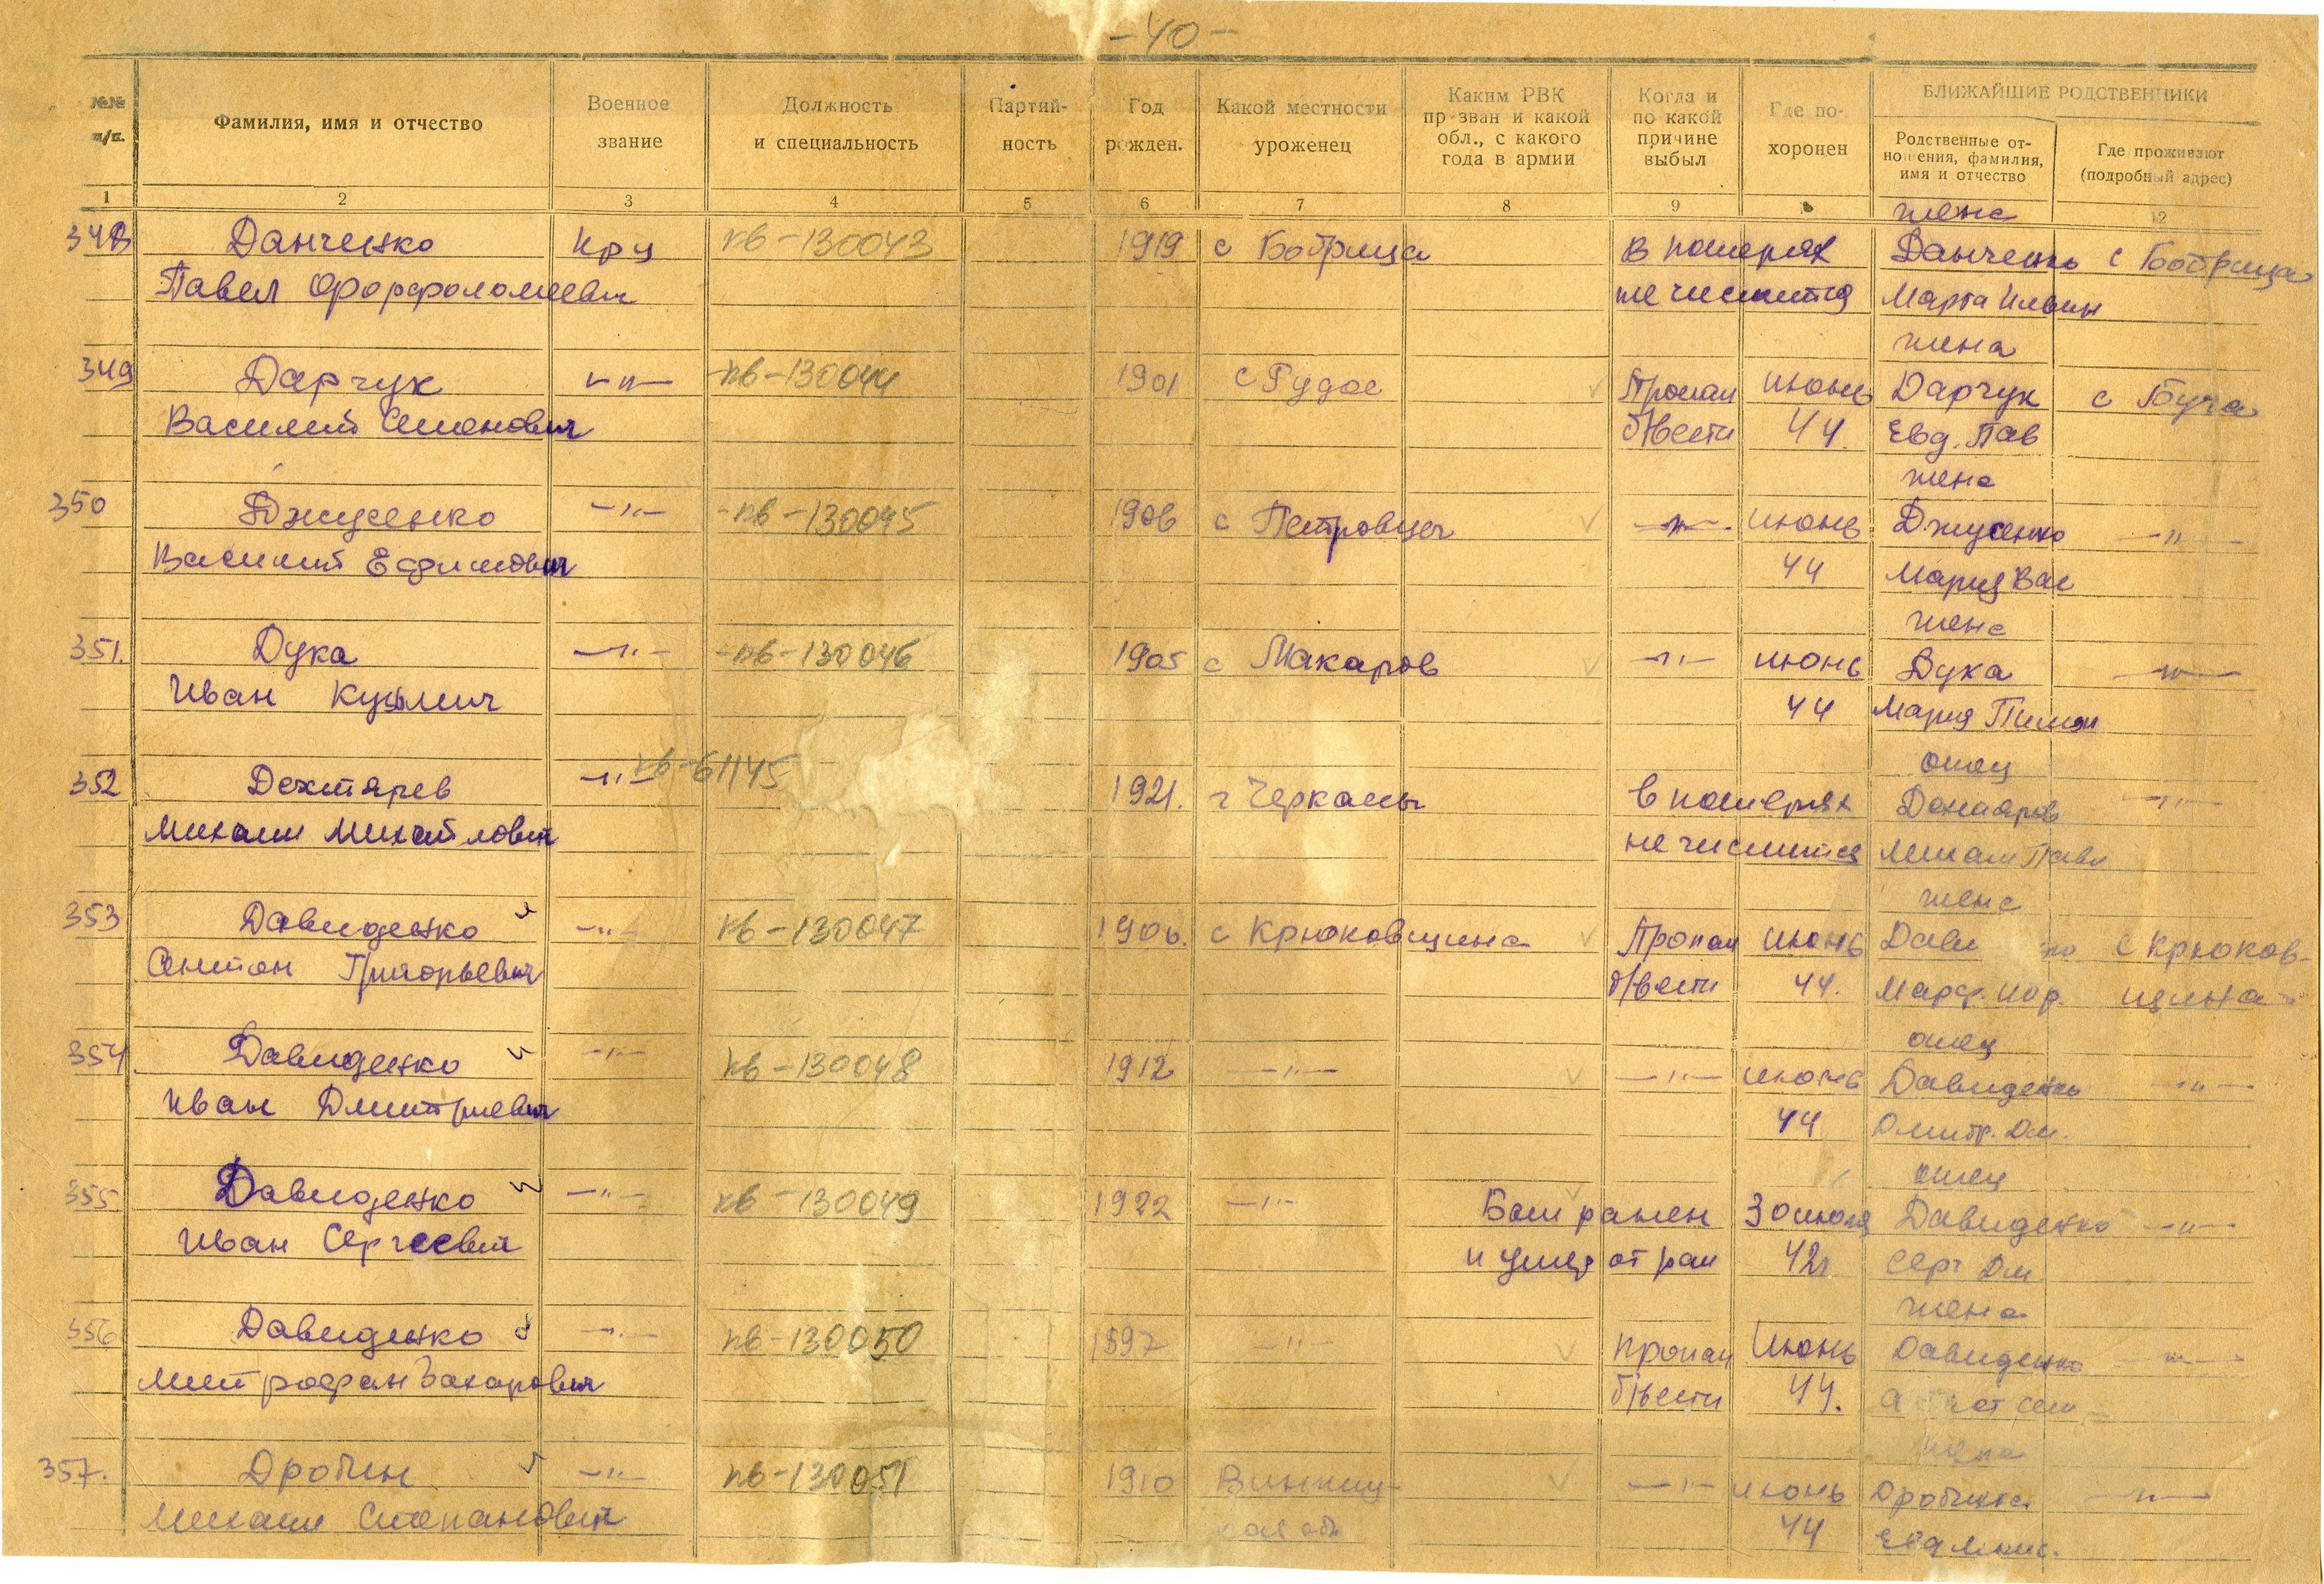 -40-
№№ п/п.
Фамилия, имя и отчество
Военное звание
Должность и специальность
Партий-ность
Год рожден.
Какой местности уроженец
Каким РВК призван и какой обл., с какого года в армии
Когда и по какой причине выбыл
Где по-хоронен
БЛИЖАЙШИЕ РОДСТВЕННИКИ
Родственные от-ношения, фамилия, имя и отчество
Где проживают (подробный адрес)
1 2 3 4 5 6 7 8 9 12
жена
348 Данченко кр-ц кв-130043 1919 с Бобрица в потерях Данченко с Бобрица
Павел Форфоломеевич не числится Марта Ильин
жена
349 Дарчук -"- кв-130044 1901 с Рудое Пропал июнь Дарчук с Буча
Василий Семенович б/вести 44. Евд. Пав
жена
350 Джусенко -"- кв-130045 1906 с Петровцы -"- июнь Джусенко -"-
Василий Ефимович 44 Мария Вас
жена
351. Дука -"- кв-130046 1905 с Макаров -"- июнь Дука -"-
Иван Кузьмич 44 Мария Пимон
отец
352 Дехтярев -"- кв-61145 1921. г Черкассы в потерях -"-
Михаил Михайлович не числится Михаил Павл
жена
353 Давиденко кв-130047 1906. с Крюковщина Пропал июнь Дави ко с Крюков-
Антон Григорьевич б/вести 44. Марф. щина
отец
354 Давиденко -"- кв-130048 1912 -"- -"- июнь Давиденко -"-
Иван Дмитриевич 44 Дмитр. Дм.
отец
355. Давиденко -"- кв-130049 1922 -"- Был ранен 30 июля Давиденко -"-
Иван Сергеевич и умер от ран 42г Серг Дм.
жена
356 Давиденко -"- кв-130050 1897 -"- пропал Июнь Давиденко -"-
Митрофан Захарович б/вести 44. Сем
жена
357. Дробин -"- кв-130051 1910 Винниц- -"- июнь Дробина -"-
Михаил Степанович кая обл 44 Евд